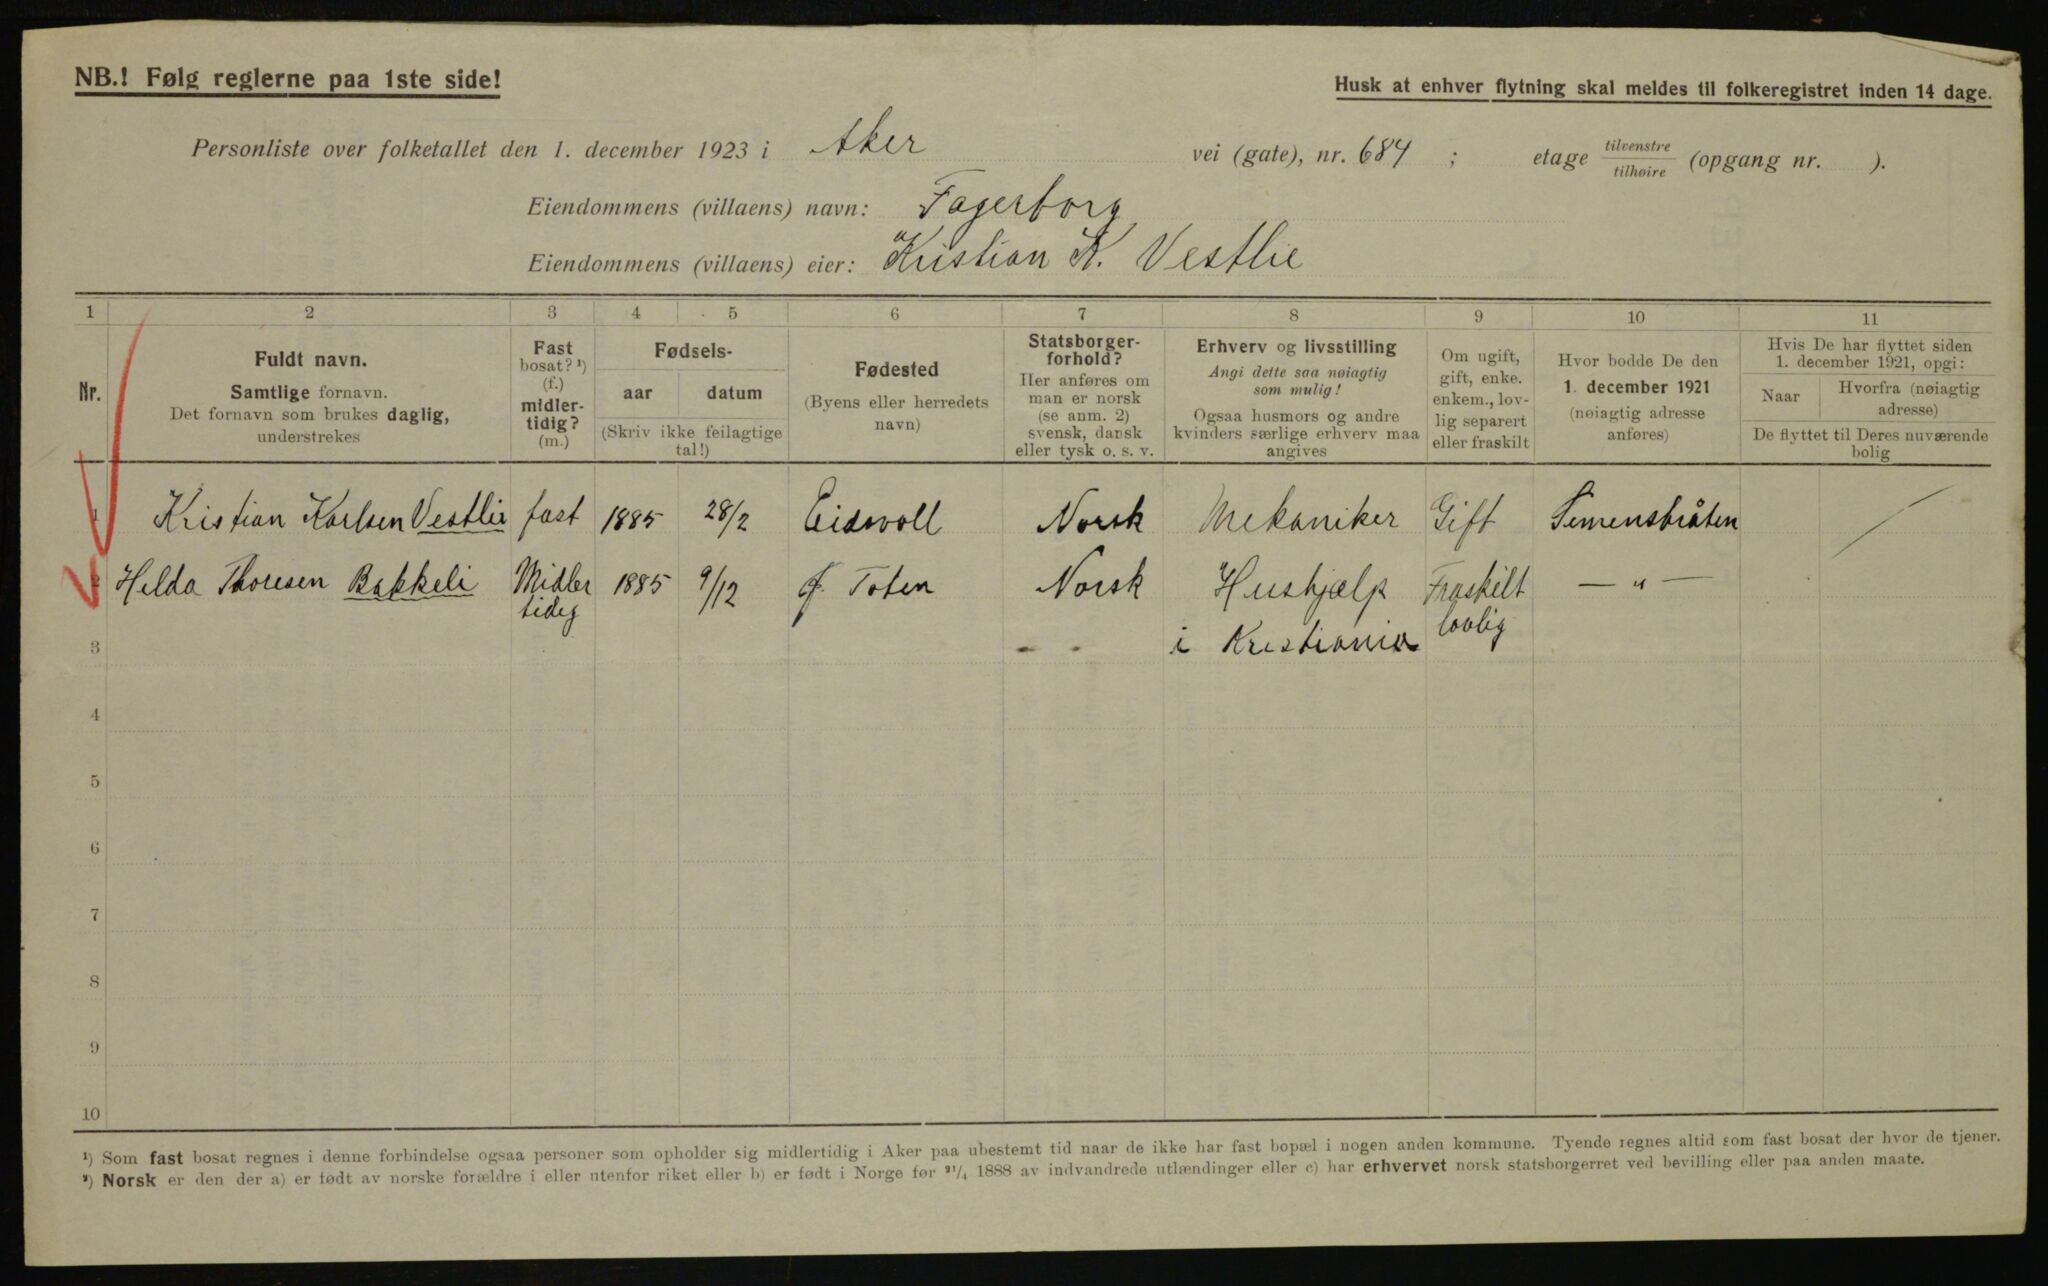 NB.! Følg reglerne paa 1ste side!
Husk at enhver flytning skal meldes til folkeregistret inden 14 dage.
Personliste over folketallet den 1. december 1923 i Aker vei (gate), nr. 684 ; etage tilvenstre/tilhøire (opgang nr. ).
Eiendommens (villaens) navn: Fagerborg
Eiendommens (villaens) eier: Kristian K. Vestlie
1 2 3 4 5 6 7 8 9 10 11
Nr.
Fuldt navn.
Samtlige fornavn.
Det fornavn som brukes daglig,
understrekes
Fast
bosat? ¹)
(f.)
midler-
tidig?
(m.)
Fødsels-
aar datum
(Skriv ikke feilagtige
tal!)
Fødested
(Byens eller herredets
navn)
Statsborger-
forhold?
Her anføres om
man er norsk
(se anm. 2)
svensk, dansk
eller tysk o. s. v.
Erhverv og livsstilling
Angi dette saa nøiagtig
som mulig!
Ogsaa husmors og andre
kvinders særlige erhverv maa
angives
Om ugift,
gift, enke.
enkem., lov-
lig separert
eller fraskilt
Hvor bodde De den
1. december 1921
(nøiagtig adresse
anføres)
Hvis De har flyttet siden
1. december 1921, opgi:
Naar Hvorfra (nøiagtig
adresse)
De flyttet til Deres nuværende
bolig
1 Kristian Karlsen Vestlie fast 1885 28/2 Eidsvoll Norsk Mekaniker Gift Simensbråten /
2 Helda Thoresen Bakkeli Midler 1885 9/12 Ø. Toten Norsk Hushjælp Fraskilt — " —
tidig lovlig
3 i Kristiania
4
5
6
7
8
9
10
¹) Som fast bosat regnes i denne forbindelse ogsaa personer som opholder sig midlertidig i Aker paa ubestemt tid naar de ikke har fast bopæl i nogen anden kommune. Tyende regnes altid som fast bosat der hvor de tjener.
²) Norsk er den der a) er født av norske forældre i eller utenfor riket eller b) er født i Norge før ²¹/₄ 1888 av indvandrede utlændinger eller c) har erhvervet norsk statsborgerret ved bevilling eller paa anden maate.